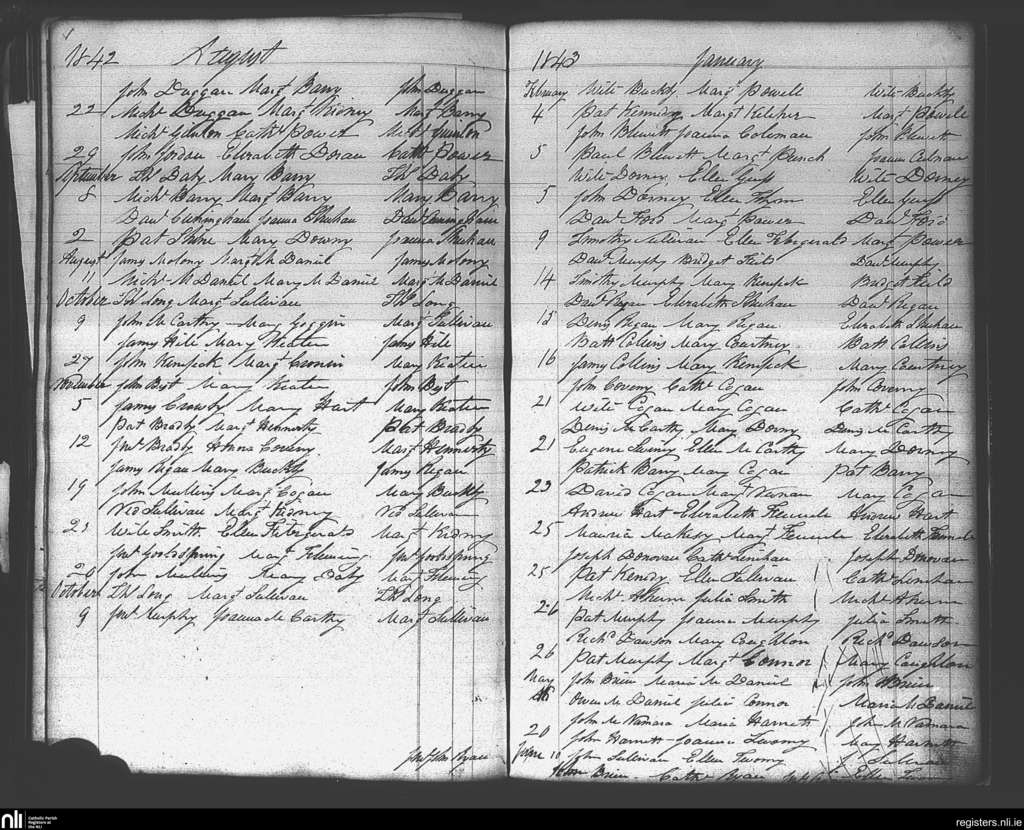 1842 August
John Duggan Margt Barry John Duggan
22 Michl Duggan Margt Kidney Margt Barry
Michl Quinlon Cathe Power Michl Quinlon
29 John Jordan Elizabeth Doran Cathe Power
September Ths Daly Mary Barry Ths Daly
8 Michl Barry Margt Barry Mary Barry
Danl Cuningham Joanna Shuhan Danl Cuningham
2 Pat Shine Mary Downy Joanna Shuhan
August Jamy Molony Margt McDaniel Jamy Molony
11 Michl McDaniel Mary McDaniel Margt McDaniel
October Ths Long Margt Sullivan Ths Long
9 John McCarthy Mary Goggin Margt Sullivan
Jamy Hile Mary Keater Jamy Hile
27 John Kenifick Margt Cronin Mary Keater
November John Best Mary Keater John Best
5 Jamy Crowly Mary Hart Mary Keater
Pat Brady Margt Pat Brady
12 Jno Brady Honna Coveny Margt
Jamy Regan Mary Buckly Jamy Regan
19 John Mullins Margt Cogan Mary Buckly
Ned Sullivan Margt Kidney Ned Sullivan
Wile Smith Ellen Fitzgerald Margt Kidney
Jno Goodspring Margt Fleming Jno Goodspring
20 John Mullins Mary Daly Mary Fleming
October Ths Long Margt Sullivan Ths Long
9 Jno Murphy Joanna McCarthy Margt Sullivan
John Ryan
1843 January
February Wile Buckly Margt Powell Wile Buckly
4 Pat Kennedy Margt Keleher Margt Powell
John Blewett Joanna Coleman John Blewett
5 Paul Blewett Margt Punch Joanna Colman
Wile Dorney Ellen Wile Dorney
5 John Dorney Ellen Ellen
Danl Ford Margt Power Danl Ford
9 Timothy Sullivan Ellen Fitzgerald Margt Power
Danl Murphy Bridget Field Danl Murphy
14 Timothy Murphy Mary Kenifick Bridget Field
Danl Regan Elizabeth Shuhan Danl Regan
15 Denis Regan Mary Regan Elizabeth Shuhan
Batt Collins Mary Courtney Batt Collins
16 Jamy Collins Mary Kenifick Mary Courtney
John Coveny Cathe Cogan John Coveny
21 Wile Cogan Mary Cogan Cathe Cogan
Denis McCarthy Mary Dorny Denis McCarthy
21 Eugene Ellen McCarthy Mary Dorny
Patrick Barry Mary Cogan Pat Barry
23 David Cogan Margt Mary Cogan
Andrew Hart Elizabeth Andrew Hart
25 Maurice Margt Elizabeth
Joseph Donovan Cathe Linehan Joseph Donovan
25 Pat Kenedy Ellen Sullivan Cathe Linehan
Michl Aherne Julia Smith Michl Aherne
26 Pat Murphy Joanna Murphy Julia Smith
Richd Dawson Mary Coughlon Richd Dawson
26 Pat Murphy Margt Connor Mary Coughlon
May John Brien Maria McDaniel John Brien
Owen McDaniel Julia Connor Maria McDaniel
John McNamara Maria Harnett John McNamara
20 John Harnett Joanna Twomy Mary Harnett
June 10 John Sullivan Ellen Twomy Sullivan
John Brien Cathe Ryan Ellen
nli Catholic Parish Registers at the NLI
registers.nli.ie